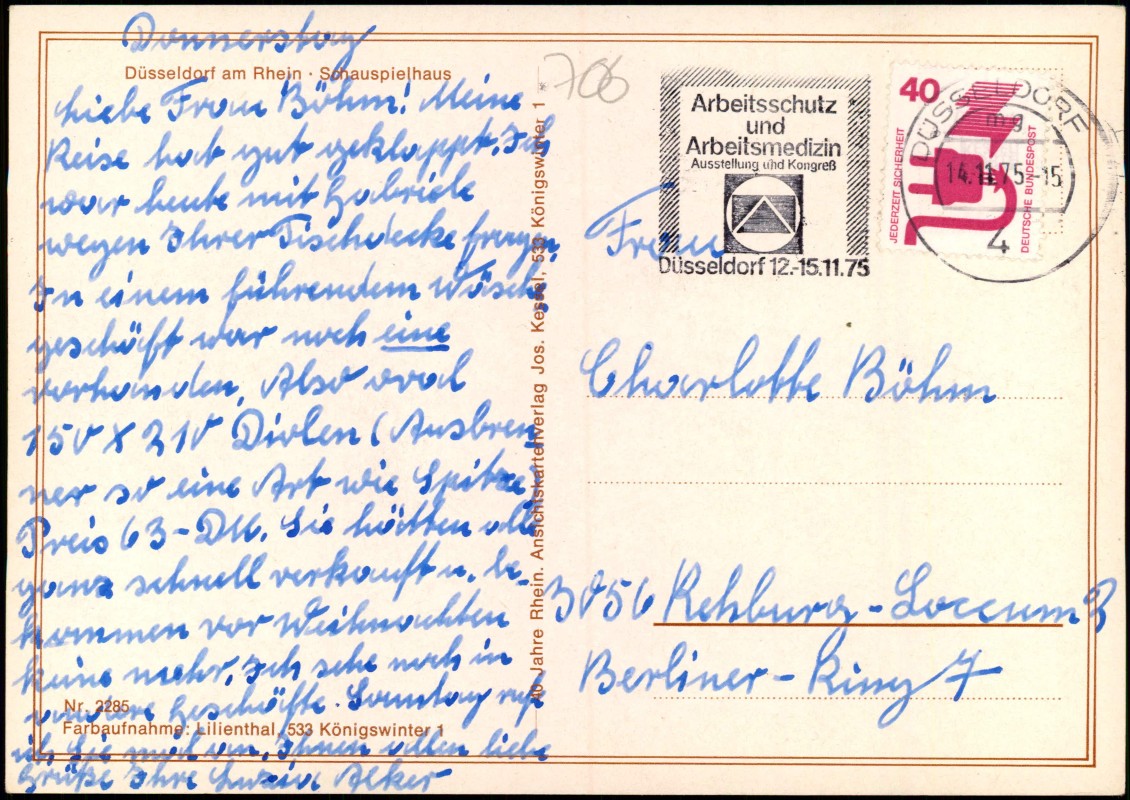 Donnerstag
Düsseldorf am Rhein · Schauspielhaus
Liebe Frau Böhm! Meine
Reise hat gut geklappt. Ich
war heute mit Gabriele
wegen Ihrer Tischdecke fragen,
In einem führendem Wäsche
geschäft war noch eine
vorhanden, Also oval
150 X 210 Diolen (Ausbren
ner so eine Art wie Spitze)
Preis 63 - DM. Sie hätten alle
ganz schnell verkauft u. be-
kommen vor Weihnachten
keine mehr. Ich sehe noch in
andere Geschäfte. Sonntag rufe
ich Sie mal an. Ihnen allen liebe
Grüße Ihre Alker
Nr. 2285
Farbaufnahme: Lilienthal, 533 Königswinter 1
40 Jahre Rhein. Ansichtskartenverlag Jos. Kessel, 533 Königswinter 1 *
706
Arbeitsschutz
und
Arbeitsmedizin
Ausstellung und Kongreß
Düsseldorf 12.-15.11.75
40
JEDERZEIT SICHERHEIT
DEUTSCHE BUNDESPOST
DÜSSELDORF
mg
14.11.75-15
4
Frau
Charlotte Böhm
3056 Rehburg-Loccum 3
Berliner-Ring 7